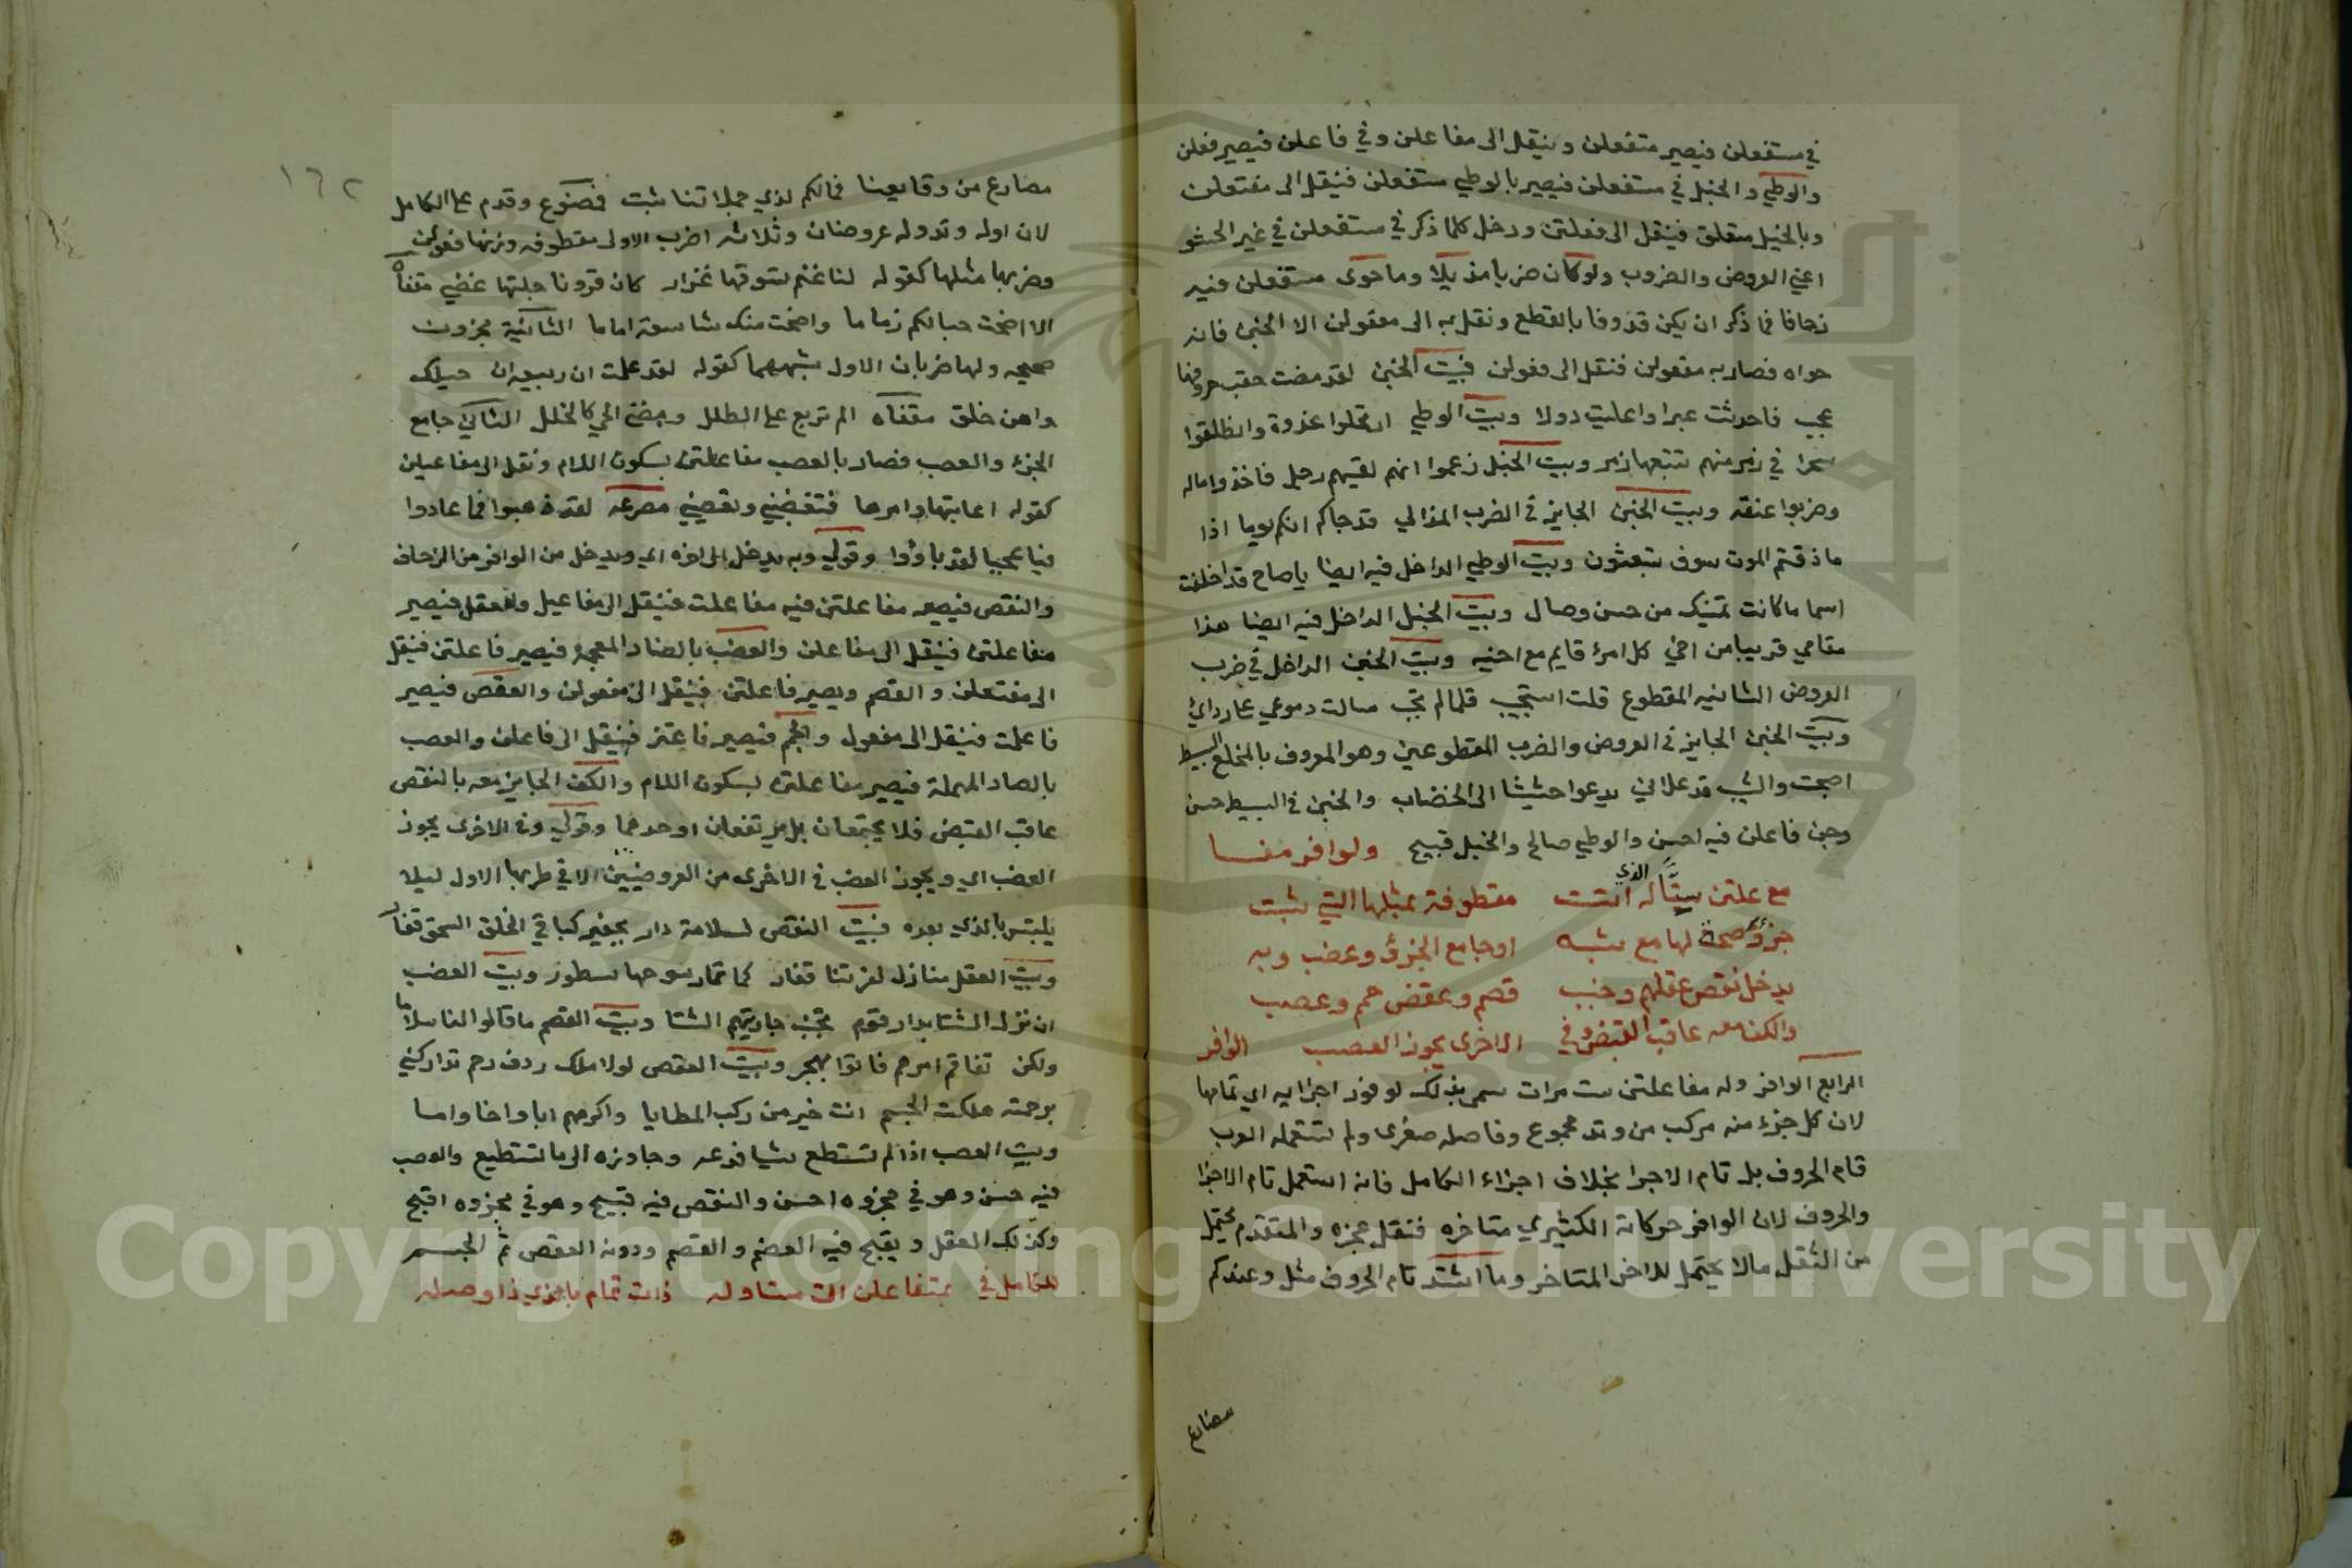 في مستفعلن فيصير متفعلن وينقل الى مفاعلن وفي فاعلن فيصير فعلن
والوطي والخبل في مستفعلن فيصير بالوطي مستعلن فينقل الى مفتعلن
وبالخبل متعلن فينقل الى فعلتن ودخل كلما ذكر في مستفعلن في غير الحشو
اعني العروض والضروب ولو كان ضربا مذيلا وما حوى مستفعلن فيه
زحافا فما ذكر ان يكن قذوفا بالقطع ونقل به الى مفعولن الا الخبن فانه
حواه فصار به معقولن فنقل الى فعولن فبيت الخبن لقد مضت حقب صروفها
عجب فاحدثت عبرا واعليت دولا وبيت الوطي ارتحلوا غدوة وانطلقوا
سحرا في زمر منهم تتبعها زمر وبيت الخبل زعموا انهم لقيهم رجل فاخذوا ماله
وضربوا عنقه وبيت الخبن الجايز في الضرب المذال قد جاكم انكم يوما اذا
ما ذقتم الموت سوف تبعثون وبيت الوطي الداخل فيه ايضا يا صاح قد اخلفت
اسما ما كانت تمنيك من حسن وصال وبيت الخبل الداخل فيه ايضا هذا
مقامي قريبا من اخي كل امرئ قايم مع اخيه وبيت الخبن الداخل في ضرب
العروض الثانيه المقطوع قلت استجيبي فلما لم تجب سالت دموعي على ردائي
وبيت الخبن الجايز في العروض والضرب المقطوعين وهو المعروف بالمخلع البسيط
اصبحت والشيب قد علاني يدعوا حثيثا الى الخضاب والخبن في البسيط حسن
وخبن فاعلن فيه احسن والوطي صالح والخبل قبيح ولوافر مفا
مع علتن ستا له الذي اتت مقطوفة بمثلها التي ثبت
جزؤ صحة لها مع شبه او جامع الجزؤ وعضب وبه
يدخل نقص عقلهم وخبب قصم وعقص جم وعصب
والكف معه عاقب القبض وفي الاخرى يجوز العصب الوافر
الرابع الوافر وله مفاعلتن ست مرات سمي بذلك لوفور اجزايه اي تمامها
لان كل جزء منه مركب من وتد مجموع وفاصله صغرى ولم تستعمله العرب
تام الحروف بل تام الاجزا بخلاف اجزاء الكامل فانه استعمل تام الاجزا
والحروف لان الوافر حركاته الكثيري متاخره فنقل عجزه والمتقدم يحتمل
من الثقل مالا يحتمل للاخر المتاخر وما انشد تام الحروف مثل وعندكم
مصارع
١٦٢
مصارع من وقايعنا فمالكم لذي حملاتنا ثبت فمصنوع وقدم على الكامل
لان اوله وتد وله عروضان وثلاثه اضرب الاولى مقطوفه وزنها فعولن
وضربها مثلها كقوله لنا غنم نسوقها غزار كان قرون جلتها عصي مقفاه
الا اضحت حبالكم زماما واضحت منك شاسعة اماما الثانية مجزوة
صحيحه ولها ضربان الاول يشبهها كقوله لقد علمت ان ربيعة ان حبلك
واهن خلق مقفاه الم تربع على الطلل ومغنى الحي كالخلل الثاني جامع
الجزء والعصب فصار بالعصب مفاعلتن بسكون اللام ونقل الى مفاعيلن
كقوله اعاتبها وامرها فتغضبني وتعصيني مصرعه لقد ذهبوا فما عادوا
فيا عجبا لقد بادوا وقولي وبه يدخل الى اخره اي ويدخل من الوافر من الزحاف
والنقص فيصير مفاعلتن فيه مفاعلت فينقل الى مفاعيل والعقل فيصير
مفاعلتن فينقل الى مفاعلن والعضب بالضاد المعجمة فيصير فاعلتن فينقل
الى مفتعلن والقصم ويصير فاعلتن فينقل الى مفعولن والعقص فيصير
فاعلت فينقل الى مفعول والجم فيصير فاعتن فينقل الى فاعلن والعصب
بالصاد المهملة فيصير مفاعلتن بسكون اللام والكف الجايز معه بالنقص
عاقب القبض فلا يجتمعان بل يرتفعان او احدهما وقولي وفي الاخرى يجوز
العضب اي ويجوز العضب في الاخرى من العروضين الا في ضربها الاول ليلا
يلتبس بالذي بعده فبيت النقص لسلامة دار بحفير كباقي الخلق السحق قفار
وبيت العقل منازل لفرتنا قفار كانما رسومها سطور وبيت العضب
ان نزل الشتا بدار قوم تجنب جار بيتهم الشتا وبيت القصم ما قالوا لنا سلاما
ولكن تفاقم امرهم فاتوا بهجر وبيت العقص لولا ملك رؤف رحم تداركني
برحمته هلكت الجسم انت خير من ركب المطايا واكرمهم ابا واخا واما
وبيت العصب اذا لم تستطع شيا فدعه وجاوزه الى ما تستطيع والعصب
فيه حسن وهو في مجزوه احسن والنقص فيه قبيح وهو في مجزوه اقبح
وكذلك العقل ويقبح فيه العضب والقصم ودونه العقص ثم الجسم
للكامل في بمتفاعلن ات ستا وله ذات تمام باحدي ذا وصله
Copyright © King Saud University